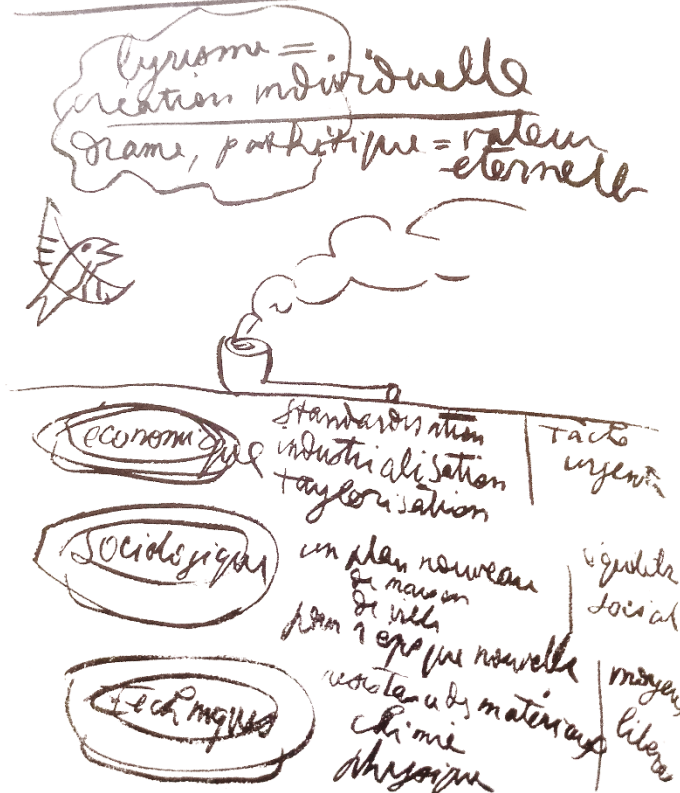 lyrisme =
création individuelle
drame, pathétique = valeur
eternelle
economique
standardisation
industrialisation
taylorisation
tâche
urgente
sociologique
un plan nouveau
de maison
de ville
pour 1 epoque nouvelle
social
techniques
resistance des matériaux
chimie
physique
moyens